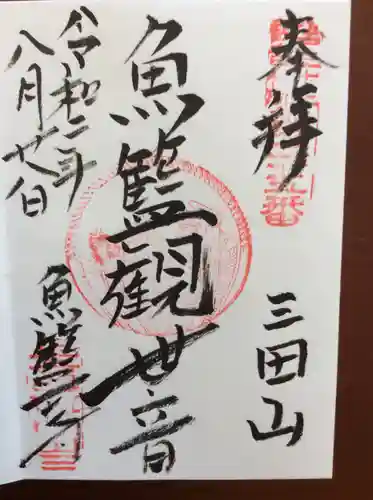 奉拝
三田山
魚籃觀世音
魚籃寺
令和二年
八月廿八日